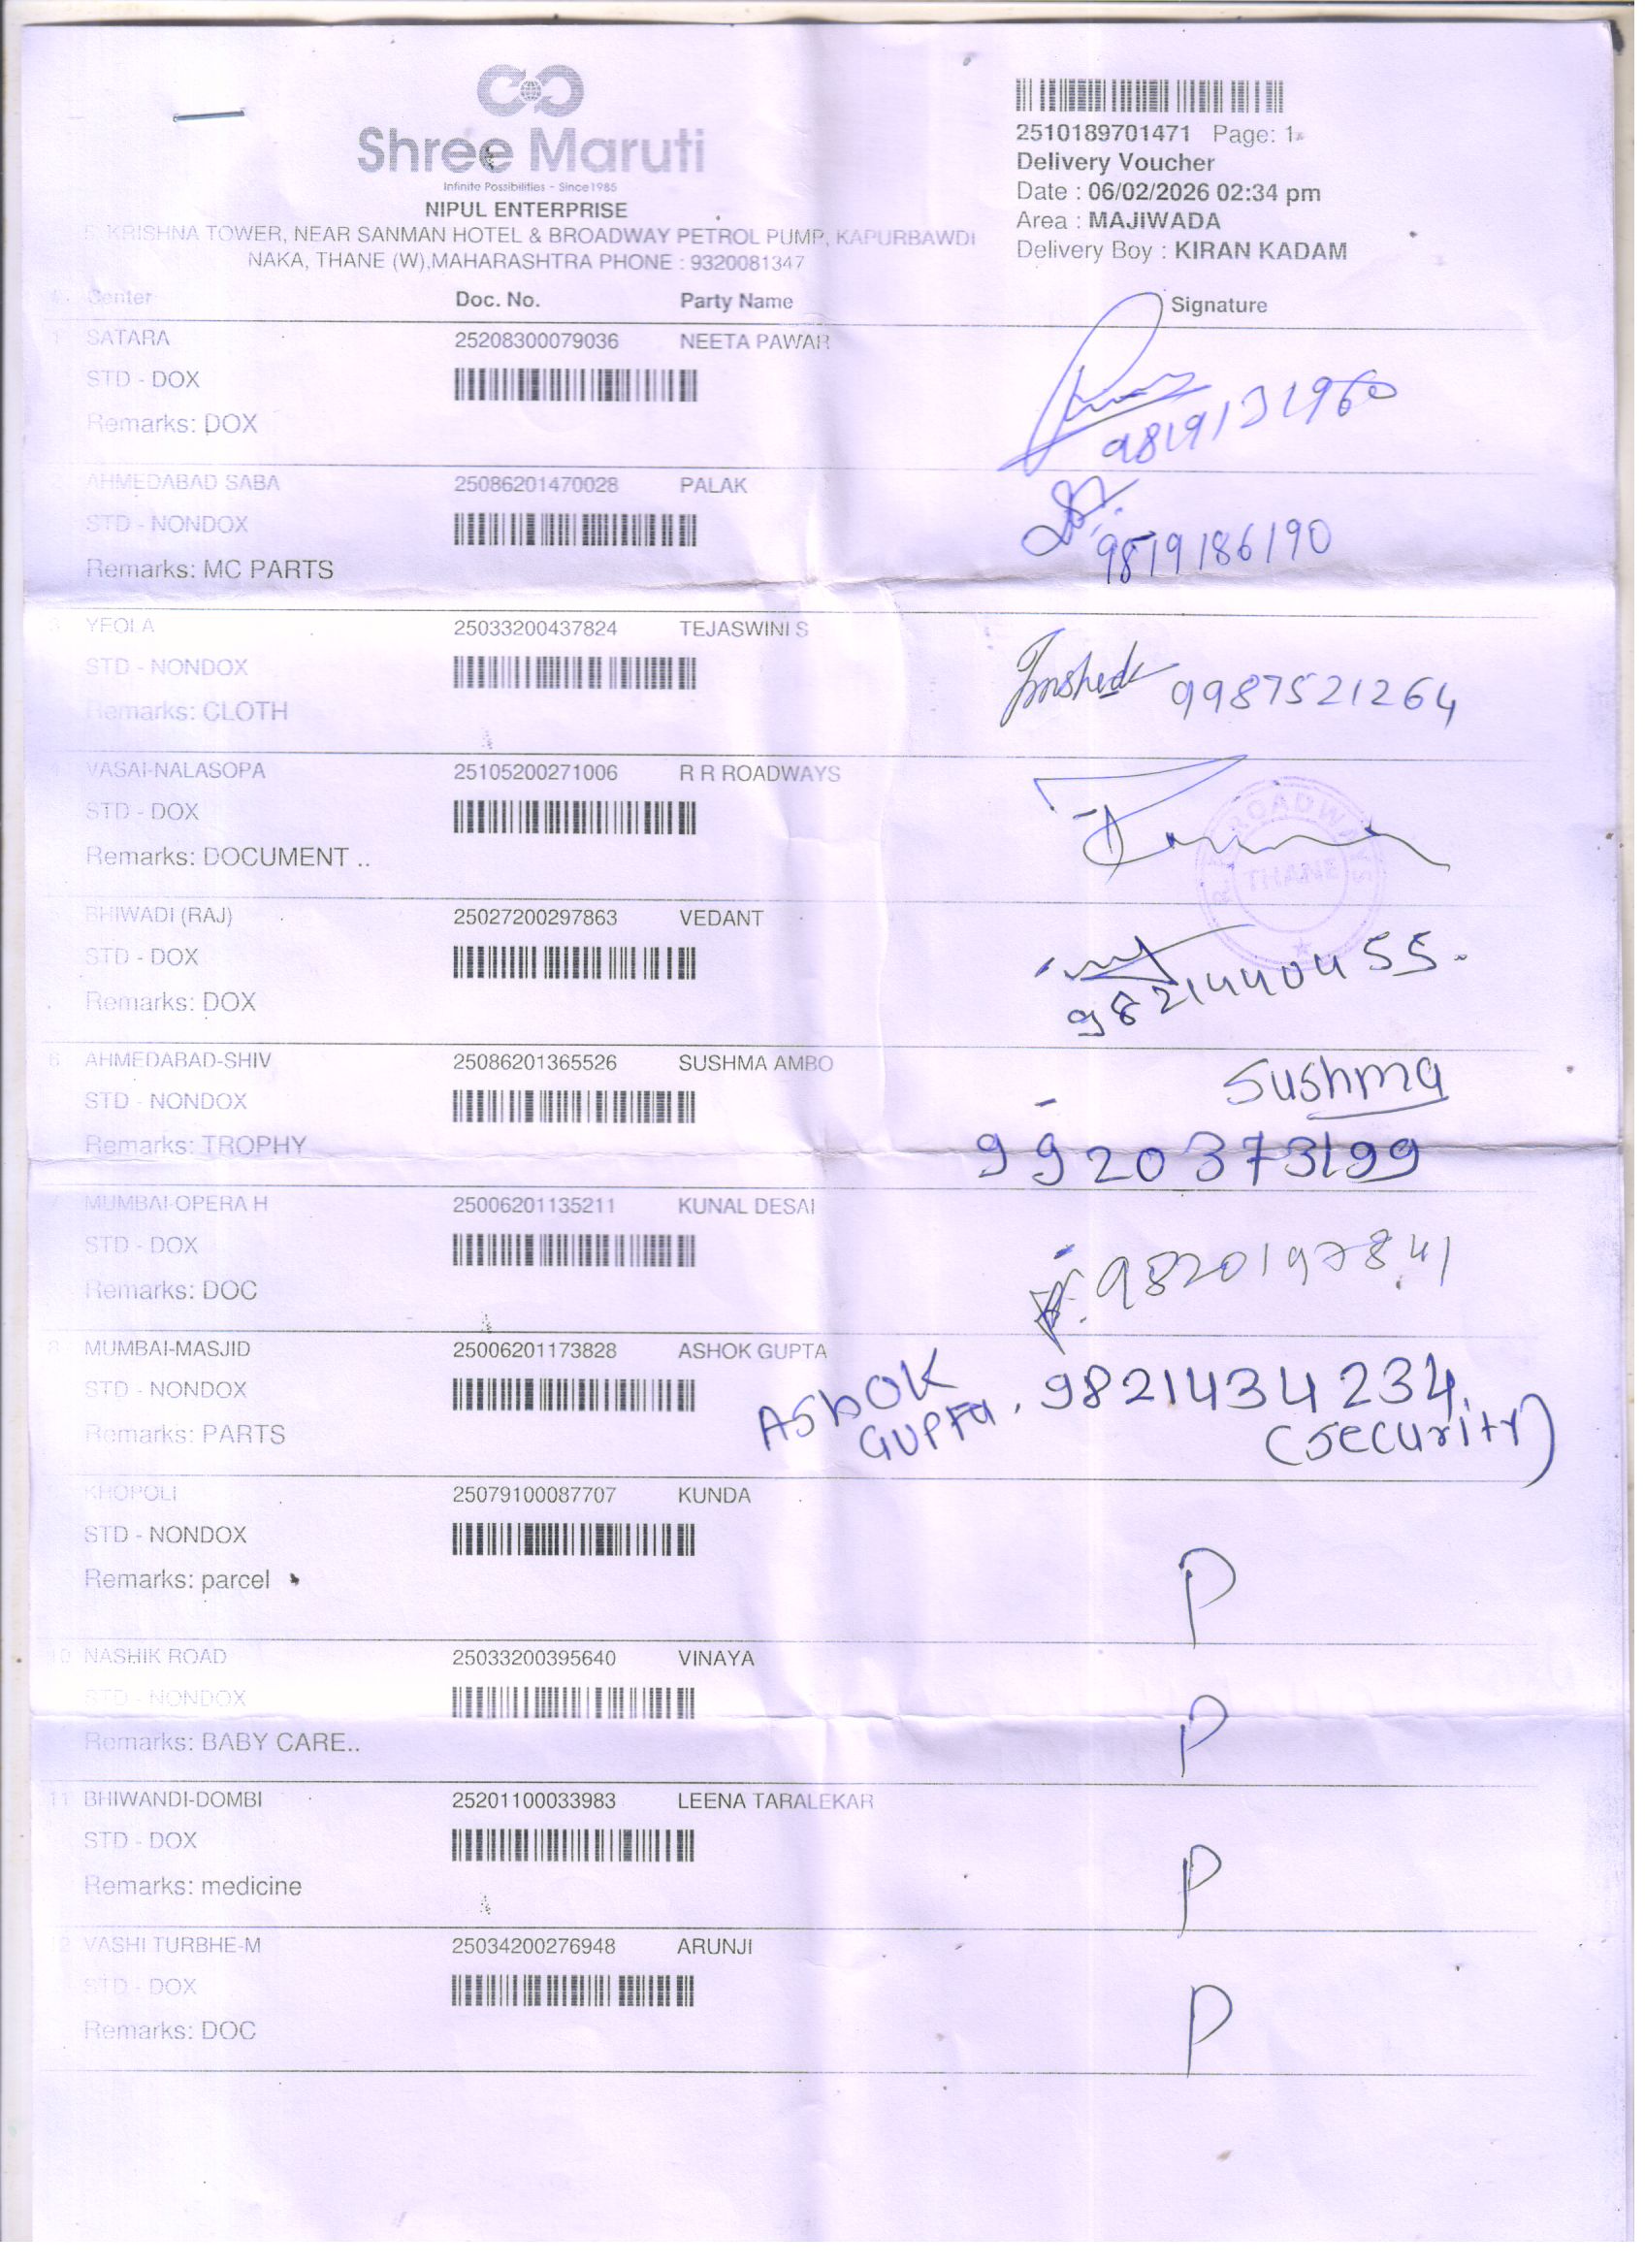 Shree Maruti
Infinite Possibilities - Since1985
NIPUL ENTERPRISE
KRISHNA TOWER, NEAR SANMAN HOTEL & BROADWAY PETROL PUMP, KAPURBAWDI
NAKA, THANE (W),MAHARASHTRA PHONE : 9320081347
2510189701471 Page: 1
Delivery Voucher
Date : 06/02/2026 02:34 pm
Area : MAJIWADA
Delivery Boy : KIRAN KADAM
Center Doc. No. Party Name Signature
1 SATARA 25208300079036 NEETA PAWAR
STD - DOX
Remarks: DOX
2 AHMEDABAD SABA 25086201470028 PALAK
STD - NONDOX
9819186190
Remarks: MC PARTS
3 YEOLA 25033200437824 TEJASWINI S
STD - NONDOX
9987521264
Remarks: CLOTH
4 VASAI-NALASOPA 25105200271006 R R ROADWAYS
STD - DOX
R R ROADWAYS
THANE
Remarks: DOCUMENT ..
5 BHIWADI (RAJ) 25027200297863 VEDANT
STD - DOX
9821440455.
Remarks: DOX
6 AHMEDABAD-SHIV 25086201365526 SUSHMA AMBO
Sushma
STD - NONDOX
Remarks: TROPHY
9920373199
7 MUMBAI-OPERA H 25006201135211 KUNAL DESAI
STD - DOX
9820197841
Remarks: DOC
8 MUMBAI-MASJID 25006201173828 ASHOK GUPTA
STD - NONDOX
AShOK
GUPTA, 9821434234,
(Security)
Remarks: PARTS
9 KHOPOLI 25079100087707 KUNDA
STD - NONDOX
Remarks: parcel
P
10 NASHIK ROAD 25033200395640 VINAYA
STD - NONDOX
P
Remarks: BABY CARE..
11 BHIWANDI-DOMBI 25201100033983 LEENA TARALEKAR
STD - DOX
P
Remarks: medicine
12 VASHI TURBHE-M 25034200276948 ARUNJI
STD - DOX
P
Remarks: DOC